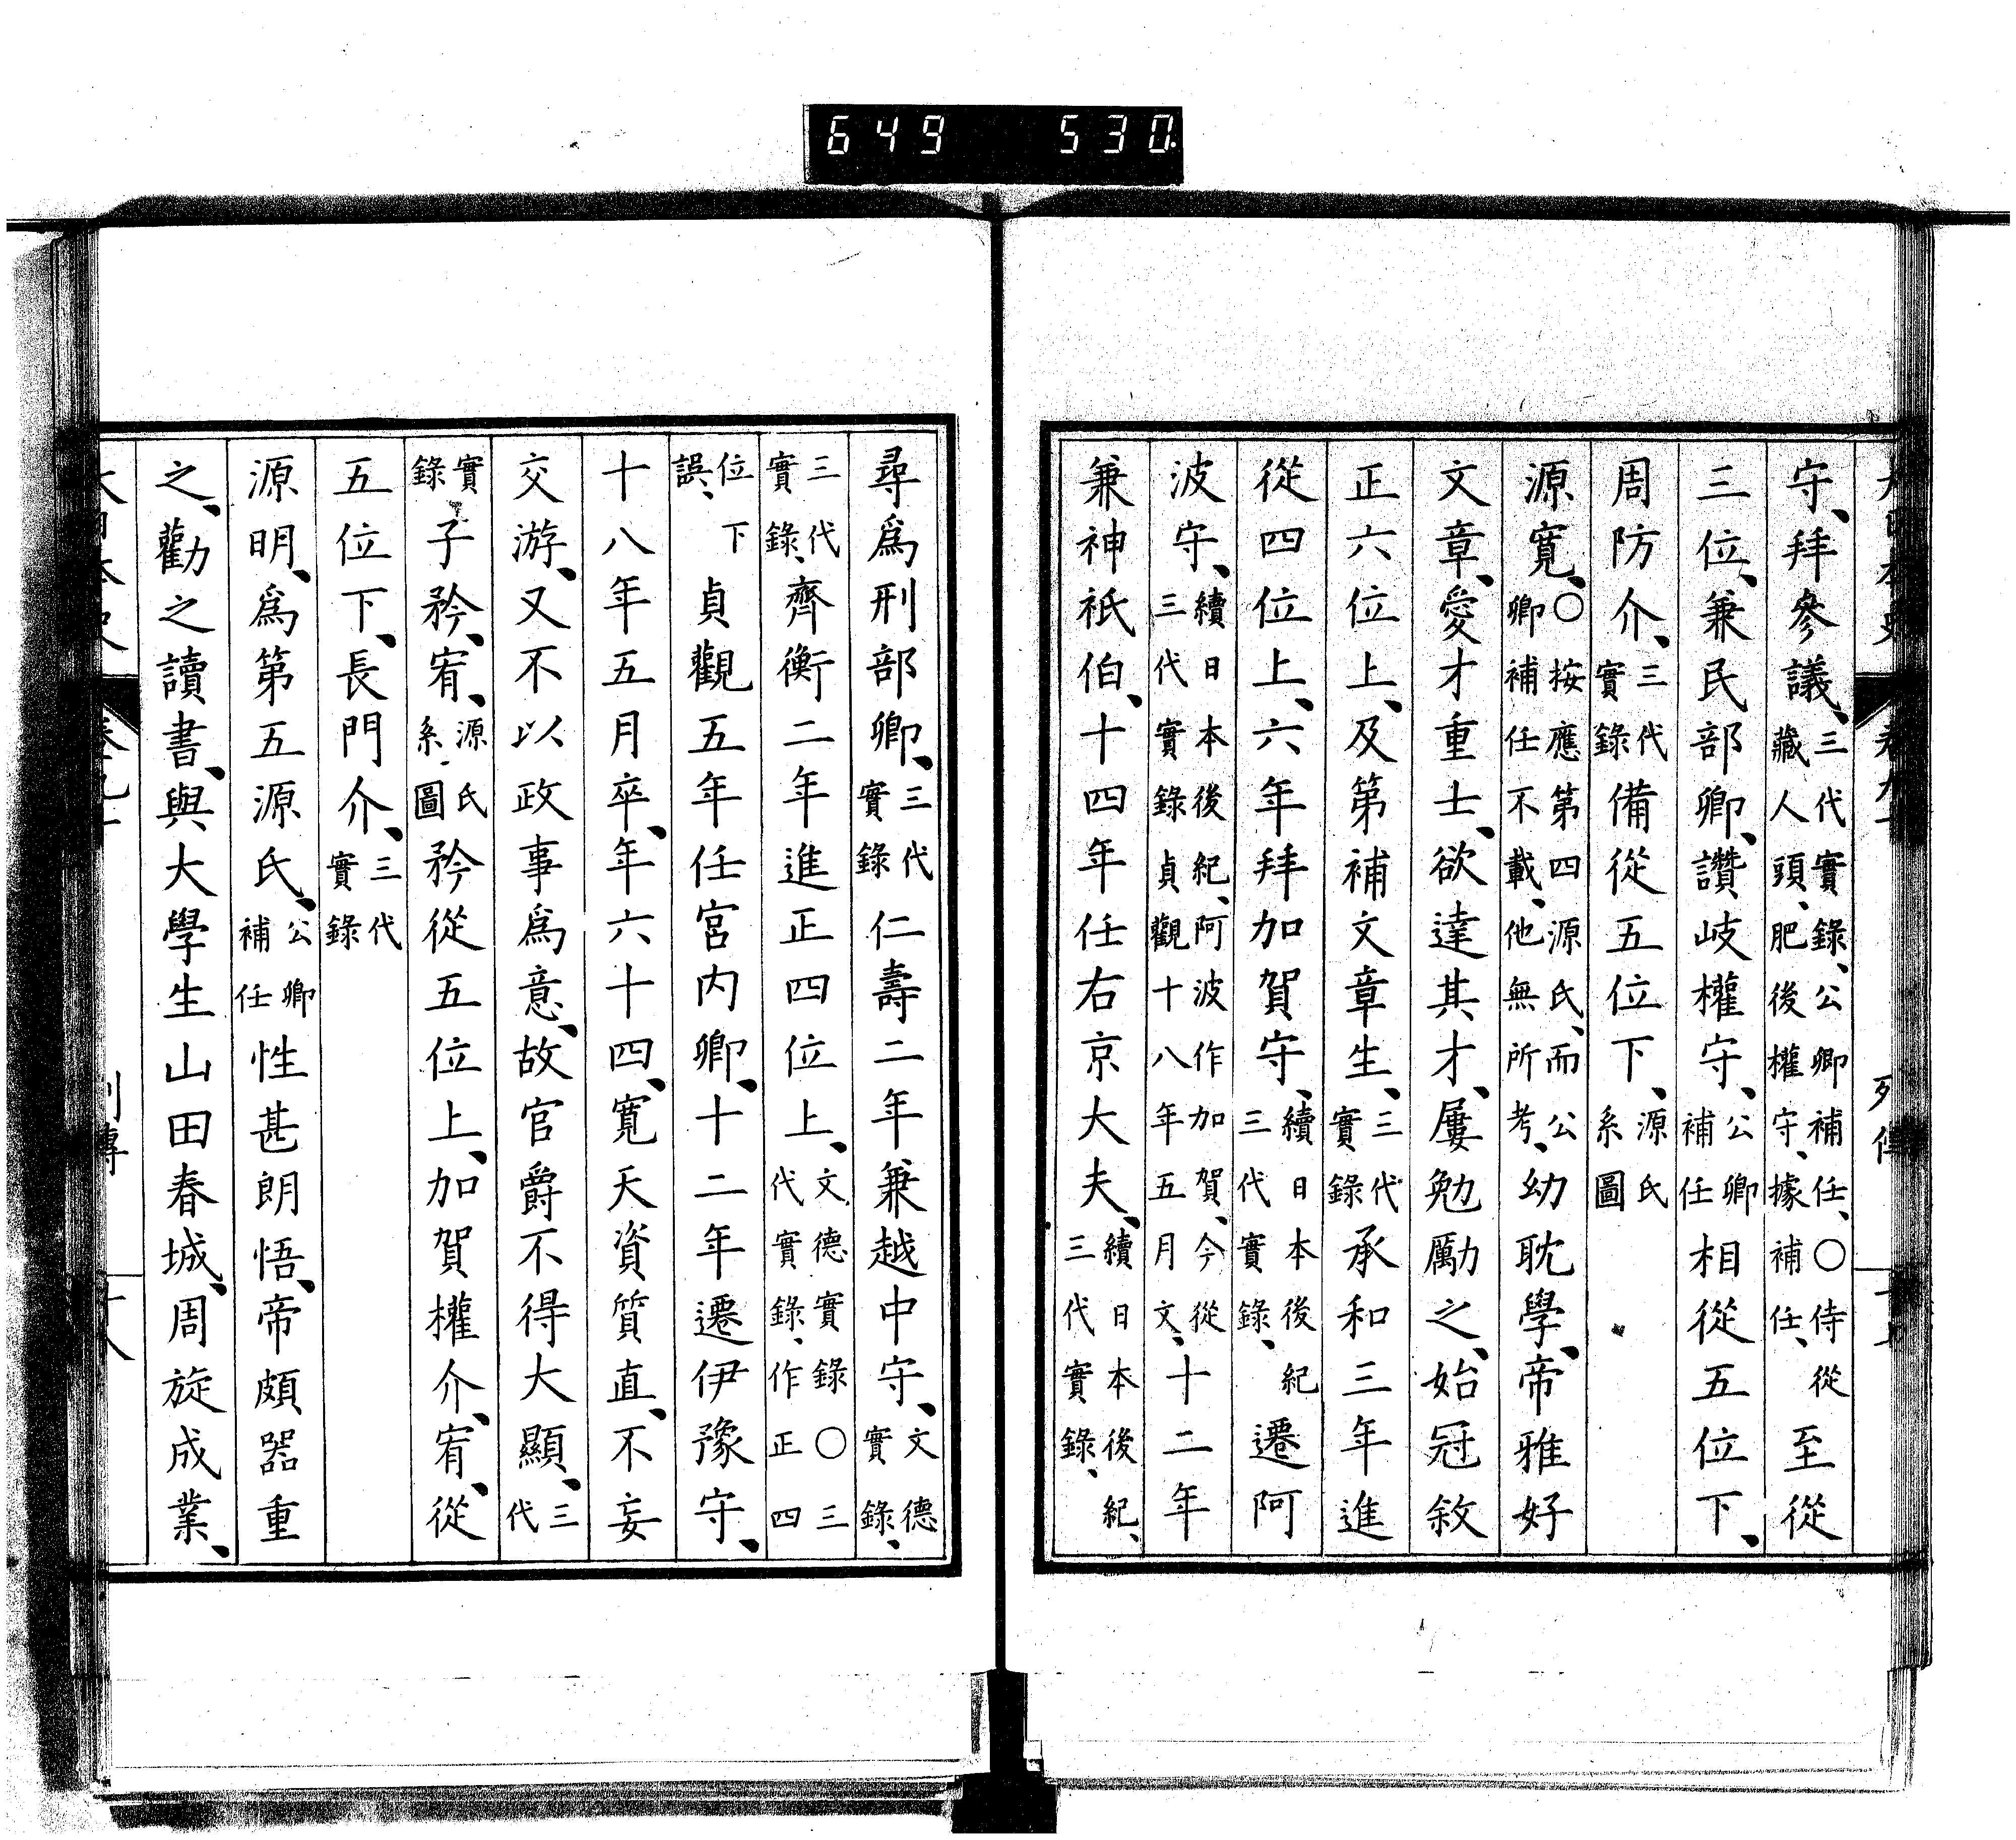 649 530
守、拜參議、三代實錄、公卿補任、〇侍從藏人頭、肥後權守、據補任、至從
三位、兼民部卿、讚岐權守、公卿補任相從五位下、
周防介、三代實錄備從五位下、源氏系圖
源寛、〇按應第四源氏、而公卿補任不載、他無所考、幼耽學、帝雅好
文章、愛才重士、欲達其才、屢勉勵之、始冠敘
正六位上、及第補文章生、三代實錄承和三年進
從四位上、六年拜加賀守、續日本後紀三代實錄、遷阿
波守、續日本後紀、阿波作加賀、今從三代實錄貞觀十八年五月文、十二年
兼神祇伯、十四年任右京大夫、續日本後紀、三代實錄、
尋爲刑部卿、三代實錄仁壽二年兼越中守、文德實錄、
三代實錄、齊衡二年進正四位上、文德實錄〇三代實錄、作正四
位下誤、貞觀五年任宮内卿、十二年遷伊豫守、
十八年五月卒、年六十四、寛天資質直、不妄
交游、又不以政事爲意、故官爵不得大顯、三代
實錄子矜、宥、源氏系圖矜從五位上、加賀權介、宥、從
五位下、長門介、三代實錄
源明、爲第五源氏、公卿補任性甚朗悟、帝頗器重
之、勸之讀書、與大學生山田春城、周旋成業、